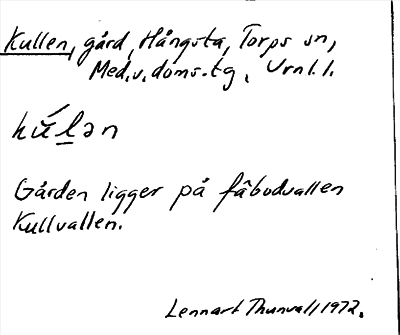 Kullen, gård, Hångsta, Torps sn,
Med.v.doms.tg, Vrnl.l.
hú̆l̲ən
Gården ligger på fäbodvallen
Kullvallen.
Lennart Thunvall 1972.